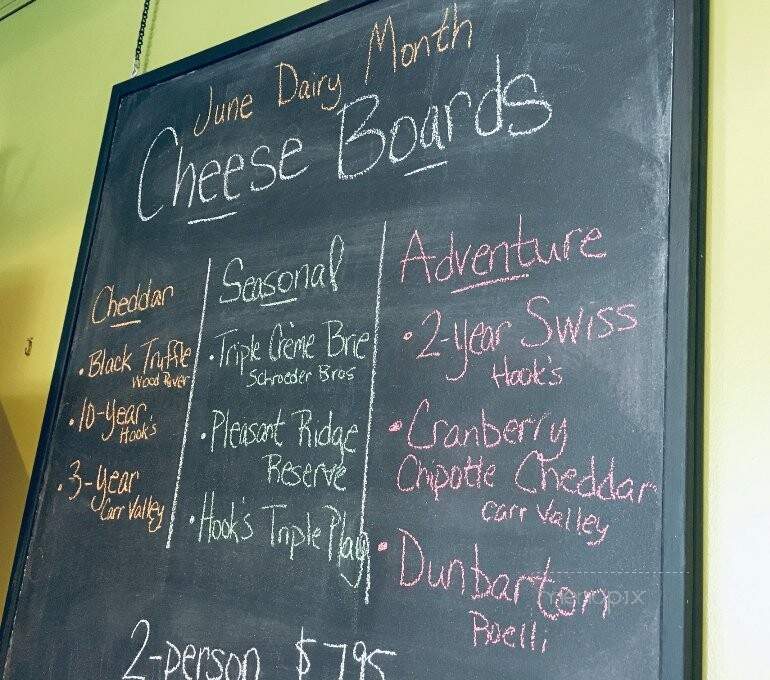 June Dairy Month
Cheese Boards
Cheddar
• Black Truffle
Wood River
• 10-year
Hook's
• 3-year
Carr Valley
Seasonal
• Triple Crème Brie
Schroeder Bros
• Pleasant Ridge
Reserve
• Hook's Triple Play
Adventure
• 2-year Swiss
Hook's
• Cranberry
Chipotle Cheddar
Carr Valley
• Dunbarton
Roelli
2-person $795
menupix